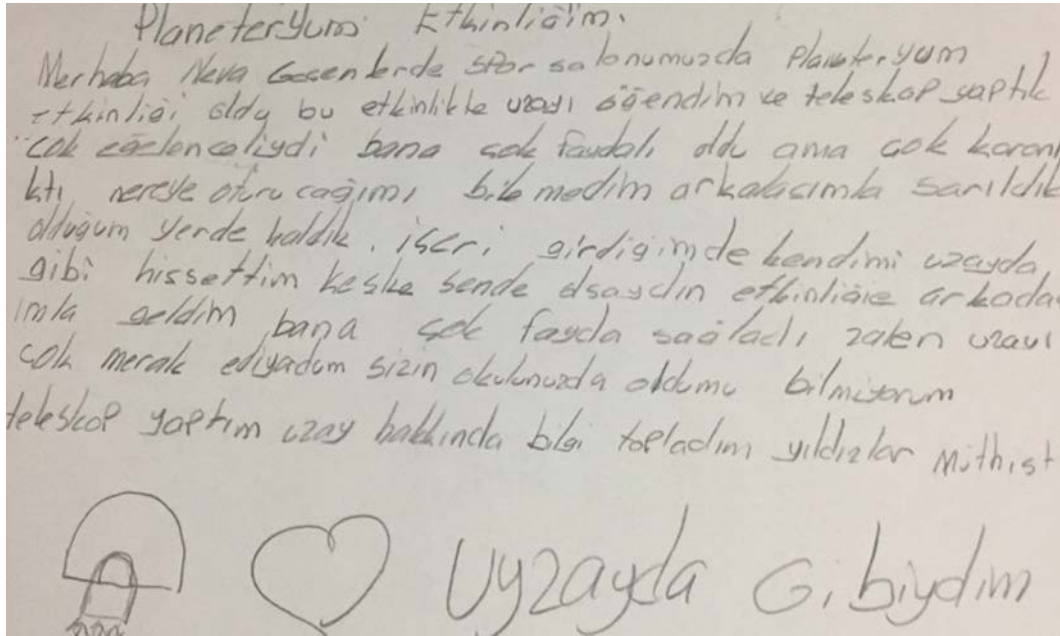 Planeteryum Etkinliğim.
Merhaba Neva Geçenlerde spor salonumuzda Planeteryum
etkinliği oldu bu etkinlikte uzayı öğendim ve teleskop yaptık
çok eğelenceliydi bana çok faydalı oldu ama çok karanl
ktı nereye oturucağımı bilemedim arkadaşımla sarıldık
olduğum yerde kaldık. içeri girdiğimde kendimi uzayda
gibi hissettim keşke sende olsaydın etkinliğie arkada
ımla geldim bana çok fayda sağladı zaten uzayı
çok merak ediyodum sizin okulunuzda oldumu bilmiyorum
teleskop yaptım uzay hakkında bilgi topladım yıldızlar Mithişt
Uyzayda Gibiydim